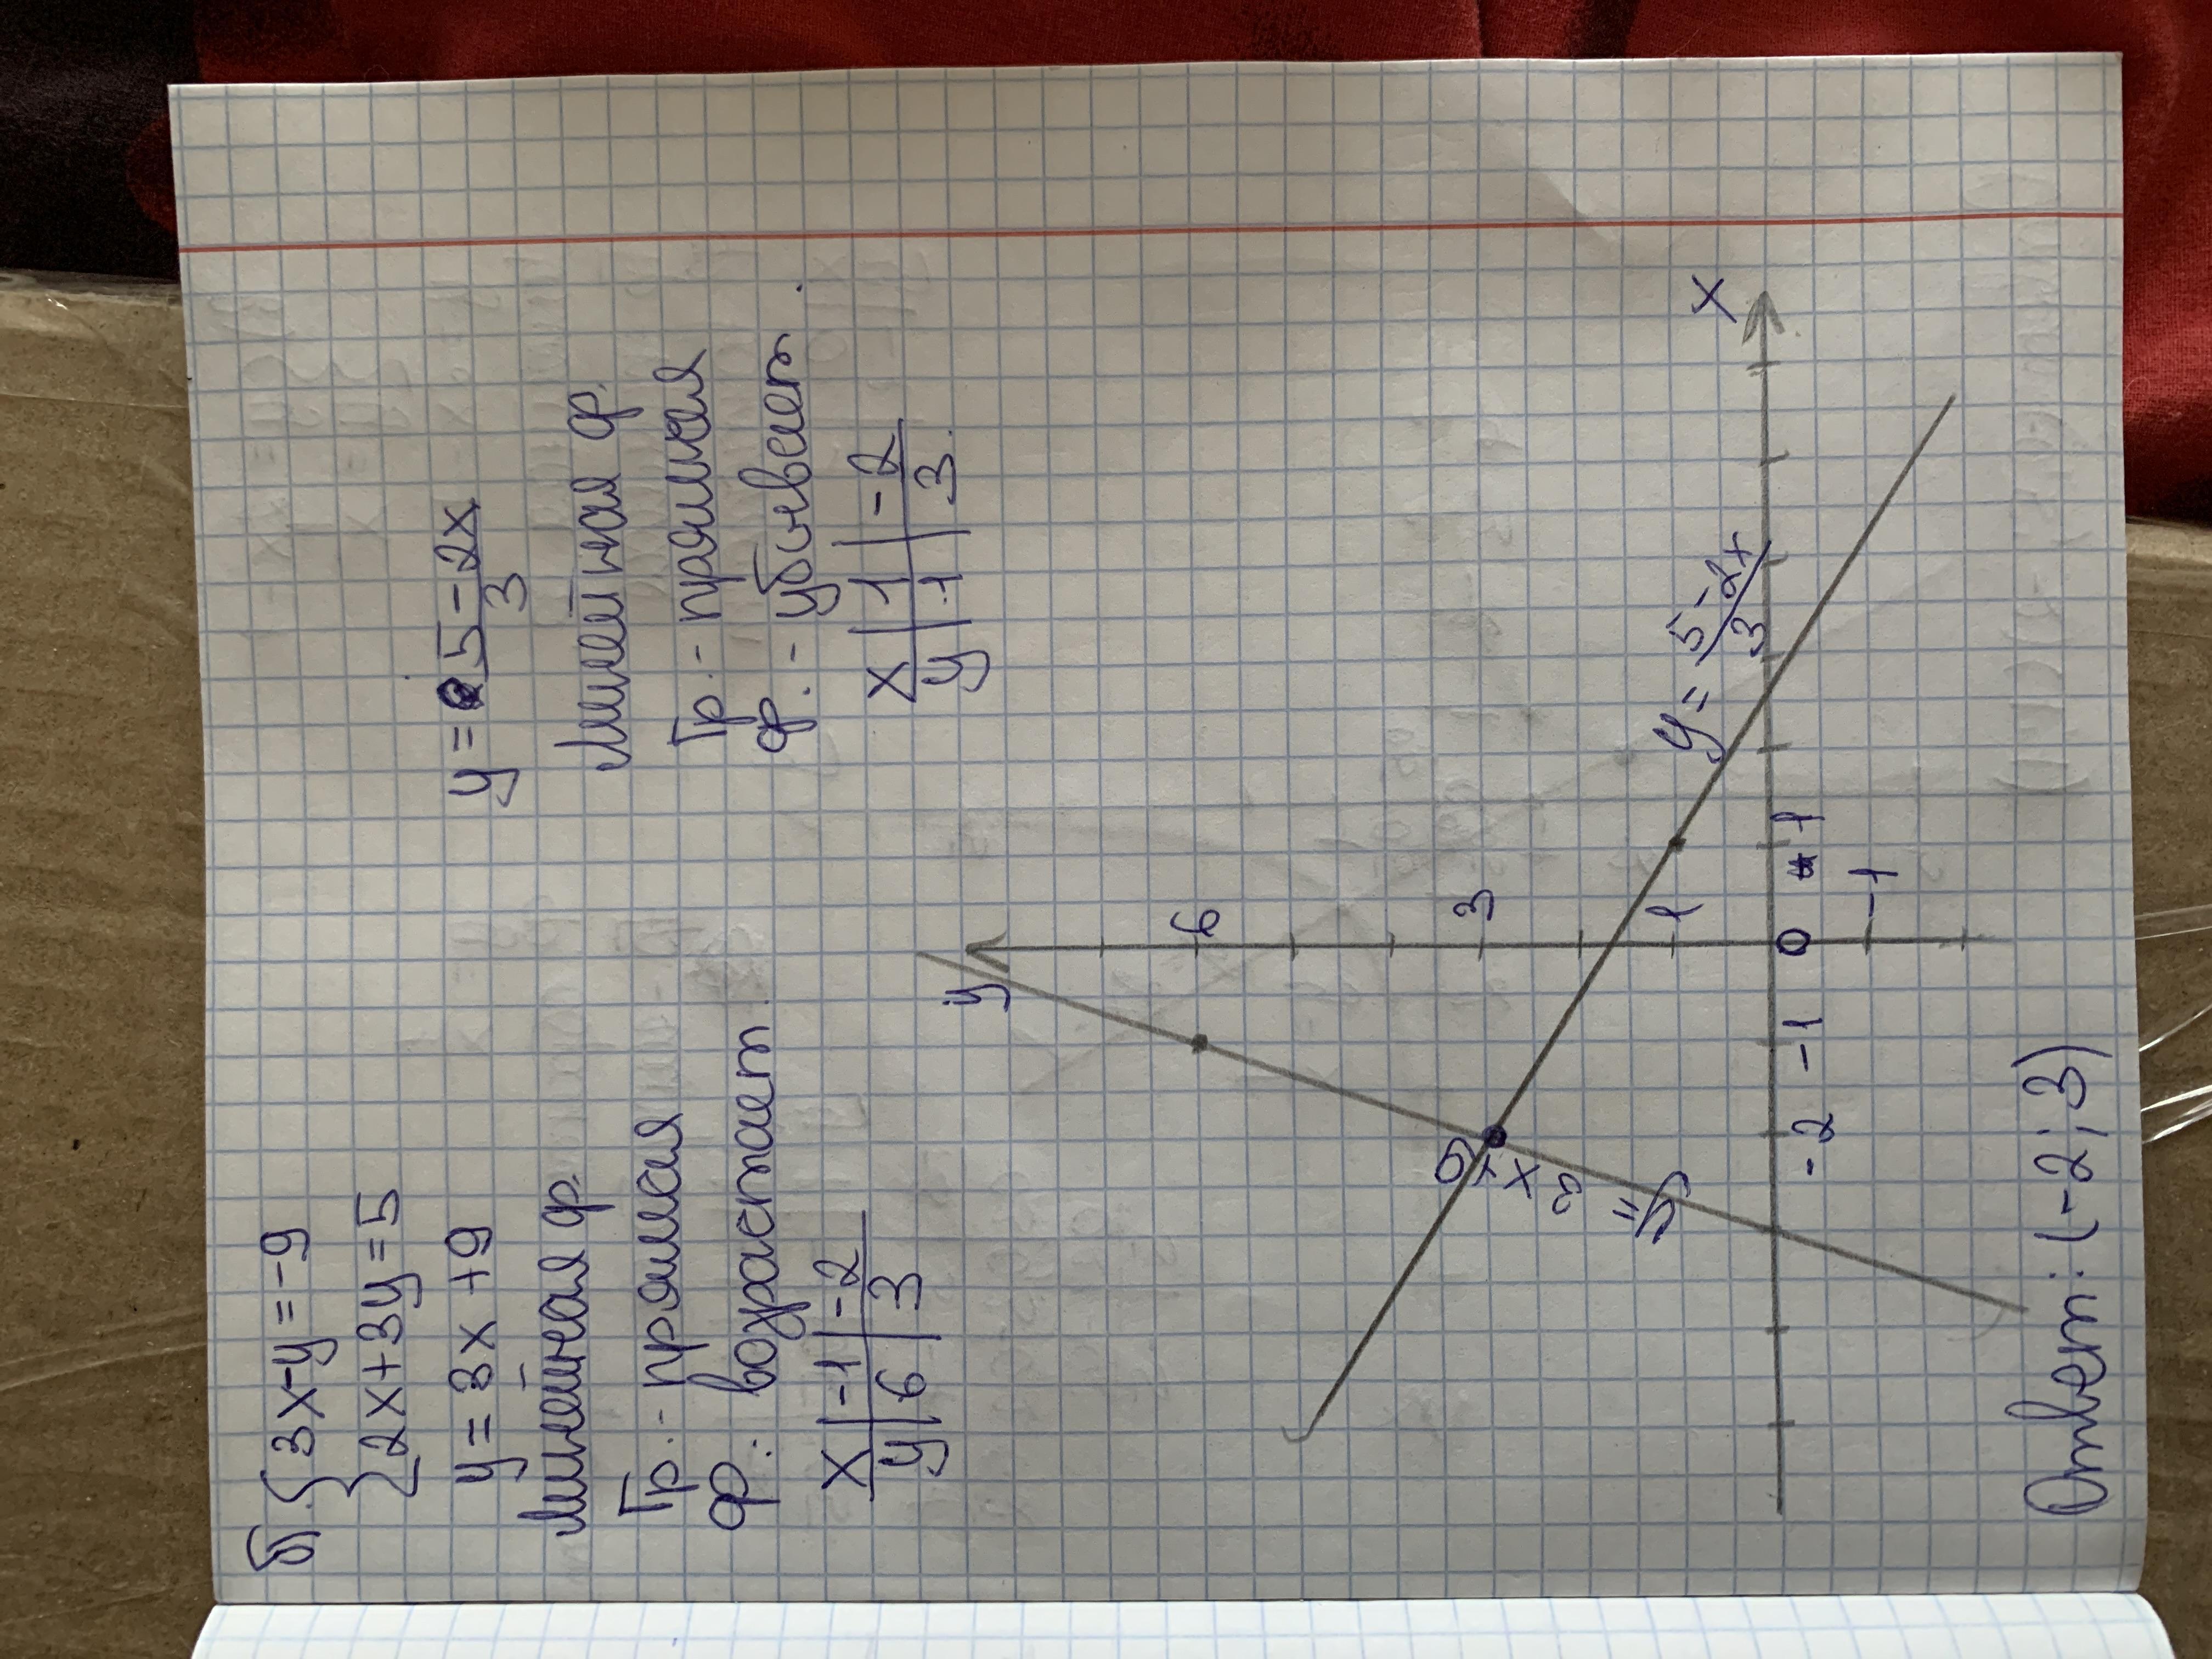 б). { 3x-y=-9
2x+3y=5
y=3x+9
y=5-2x/3
линейная ф.
линейная ф.
Гр.- прямая
Гр.- прямая
ф.: возрастает
ф.- убывает.
x | -1 | -2
y | 6 | 3
x | 1 | -2
y | 1 | 3
y
6
3
1
y=3x+9
y=5-2x/3
x
-2 -1 0 1
-1
Ответ: (-2;3)